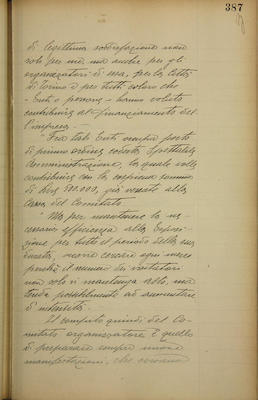 387
di legittima soddisfazione non
solo per me ma anche per gli
organizzatori di essa, per la città
di Torino e per tutti coloro che
- Enti e persone - hanno voluto
contribuire al finanziamento del-
l'impresa.
"Fra tali Enti occupa posto
di primo ordine codesta Spettabile
Amministrazione, la quale volle
contribuire con la cospicua somma
di Lire 500.000, già versata alla
Cassa del Comitato.
"Ma per mantenere la ne-
cessaria efficienza alla Esposi-
zione per tutto il periodo della sua
durata, occorre cercare ogni mezzo
perché il numero dei visitatori
non solo si mantenga alto, ma
tenda possibilmente ad aumentare
di intensità.
Il compito quindi del Co-
mitato organizzatore è quello
di preparare sempre nuove
manifestazioni, che